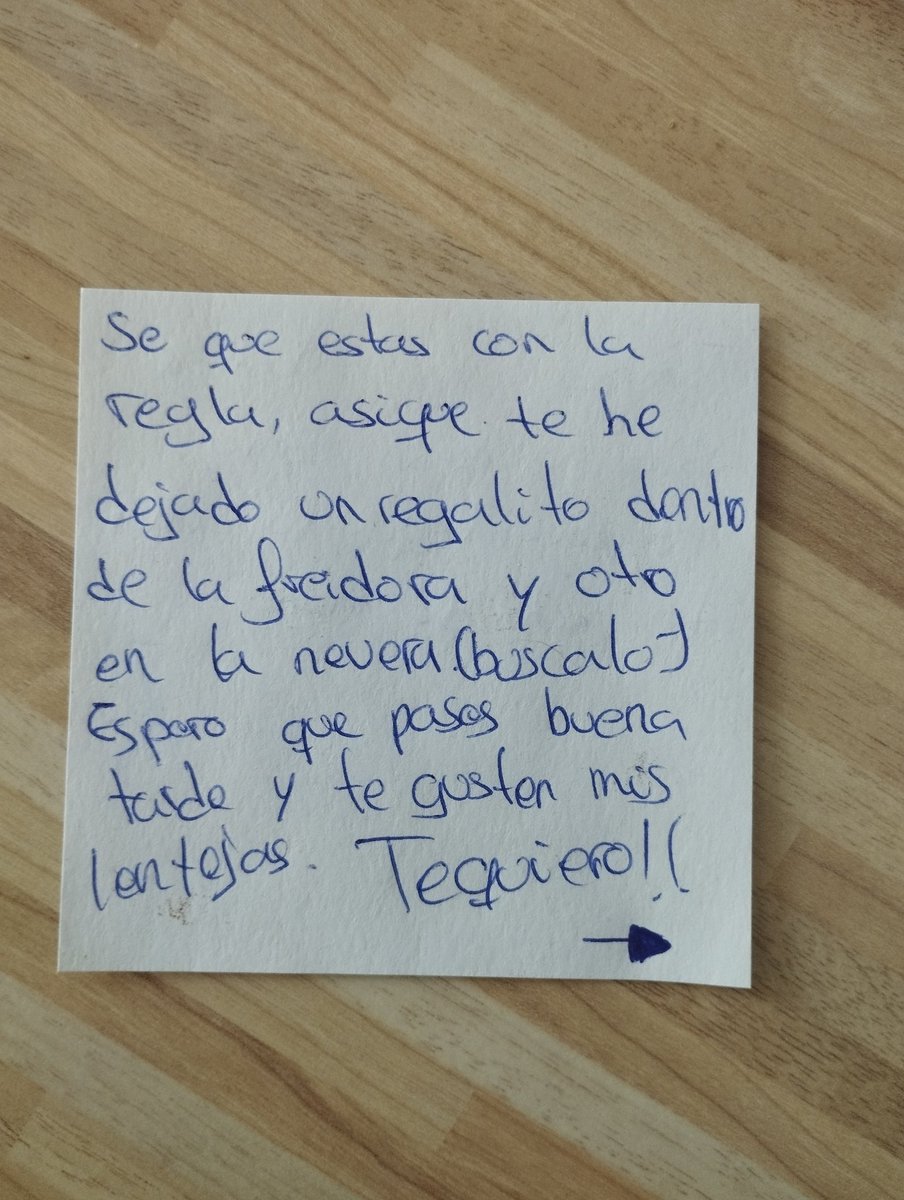 Se que estas con la
regla, asique te he
dejado un regalito dentro
de la freidora y otro
en la nevera (buscalo)
Espero que pases buena
tarde y te gusten mis
lentejas. Tequiero!!